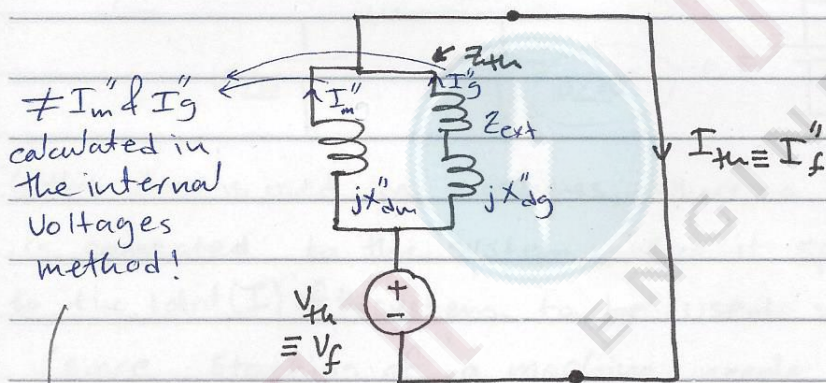 ≠ I"m & I"g
calculated in
the internal
voltages
method!
I"m
Zth
I"g
Zext
jX"dm
jX"dg
Vth
≡ Vf
+
-
Ith ≡ I"f
ENGIN